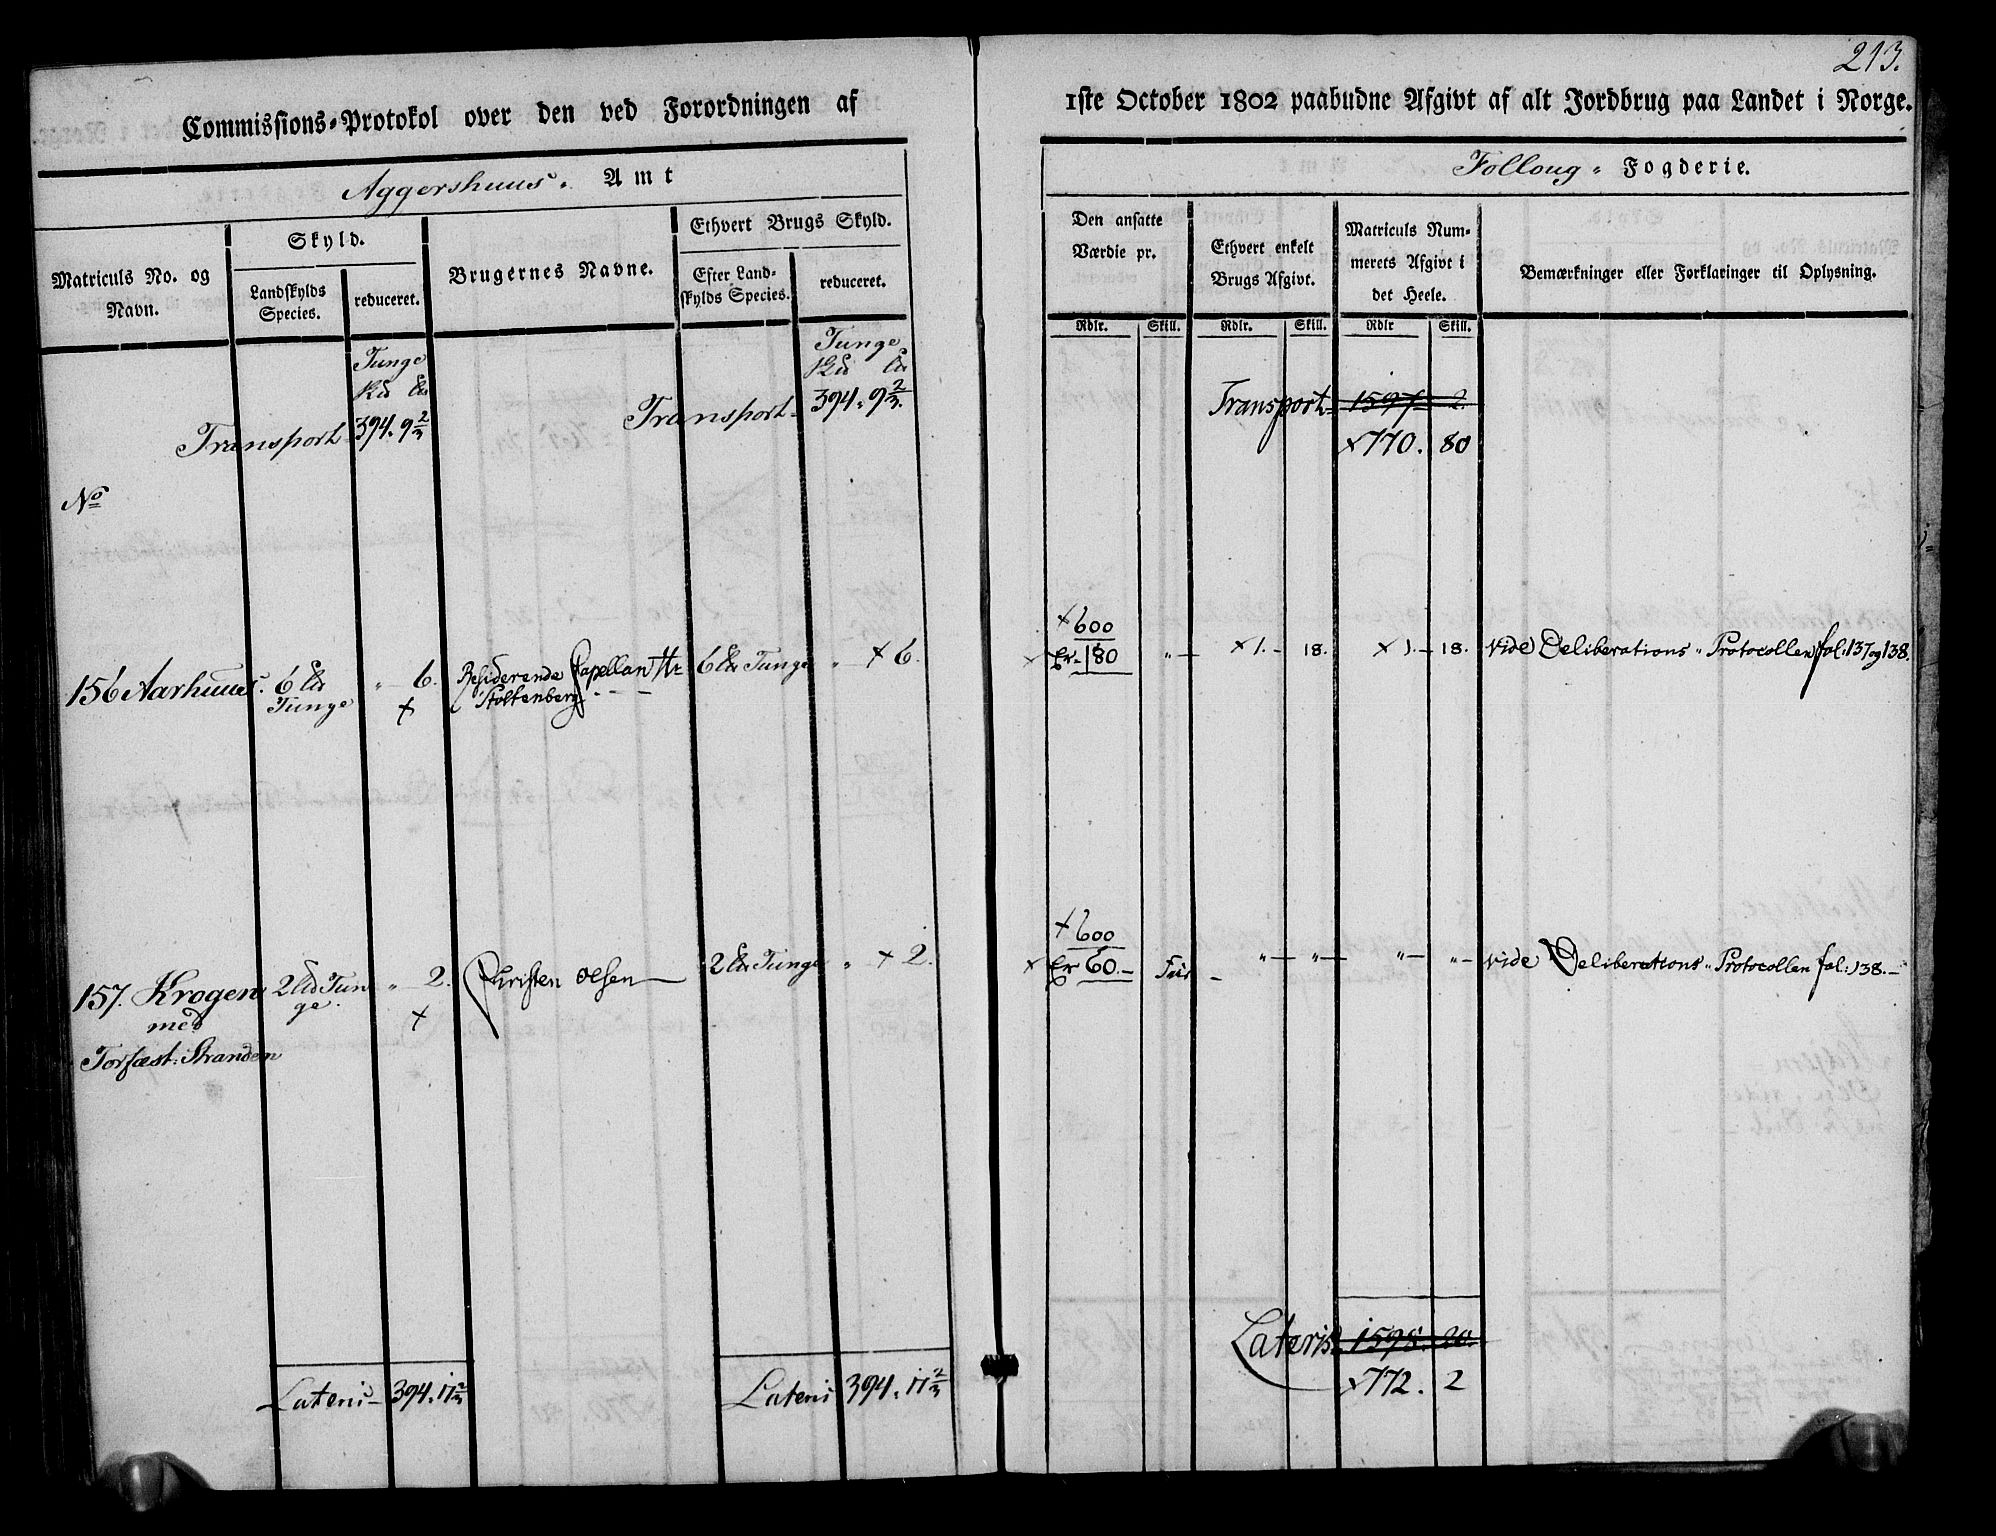 213.
Commissions-Protokol over den ved Forordningen af
1ste October 1802 paabudne Afgivt af alt Jordbrug paa Landet i Norge.
Aggershuus. Amt
Folloug. Fogderie.
Matriculs No. og Navn.
Skyld.
Landskylds Species.
reduceret.
Brugernes Navne.
Ethvert Brugs Skyld.
Efter Landskylds Species.
reduceret.
Den ansatte Værdie pr.
Ethvert enkelt Brugs Afgivt.
Matriculs Nummerets Afgivt i det Heele.
Bemærkninger eller Forklaringer til Oplysning.
Rdlr. Skill. Rdlr. Skill. Rdlr Skill.
Tunge
Tunge
Transport 394. 9 2/3
Transport 394. 9 2/3.
Transport 1597 2.
x770. 80
No
156 Aarhuus. 6 Tunge " 6. x Residerende Capellan Hr Stoltenberg 6 Tunge " x 6.
x600
x Er 180 " x 1. 18. x 1. 18. vide Deliberations " Protocollen fol: 137 og 138.
157. Krogen 2 Tunge. " 2. x Christen Olsen 2 Tunge " x 2.
med
Torfæst: Stranden
x600
x Er 60. " " " " vide Deliberations " Protocollen fol: 138.
Lateris 394. 11 2/3
Lateris 394. 11 2/3
Lateris. 1598. 20.
x772. 2